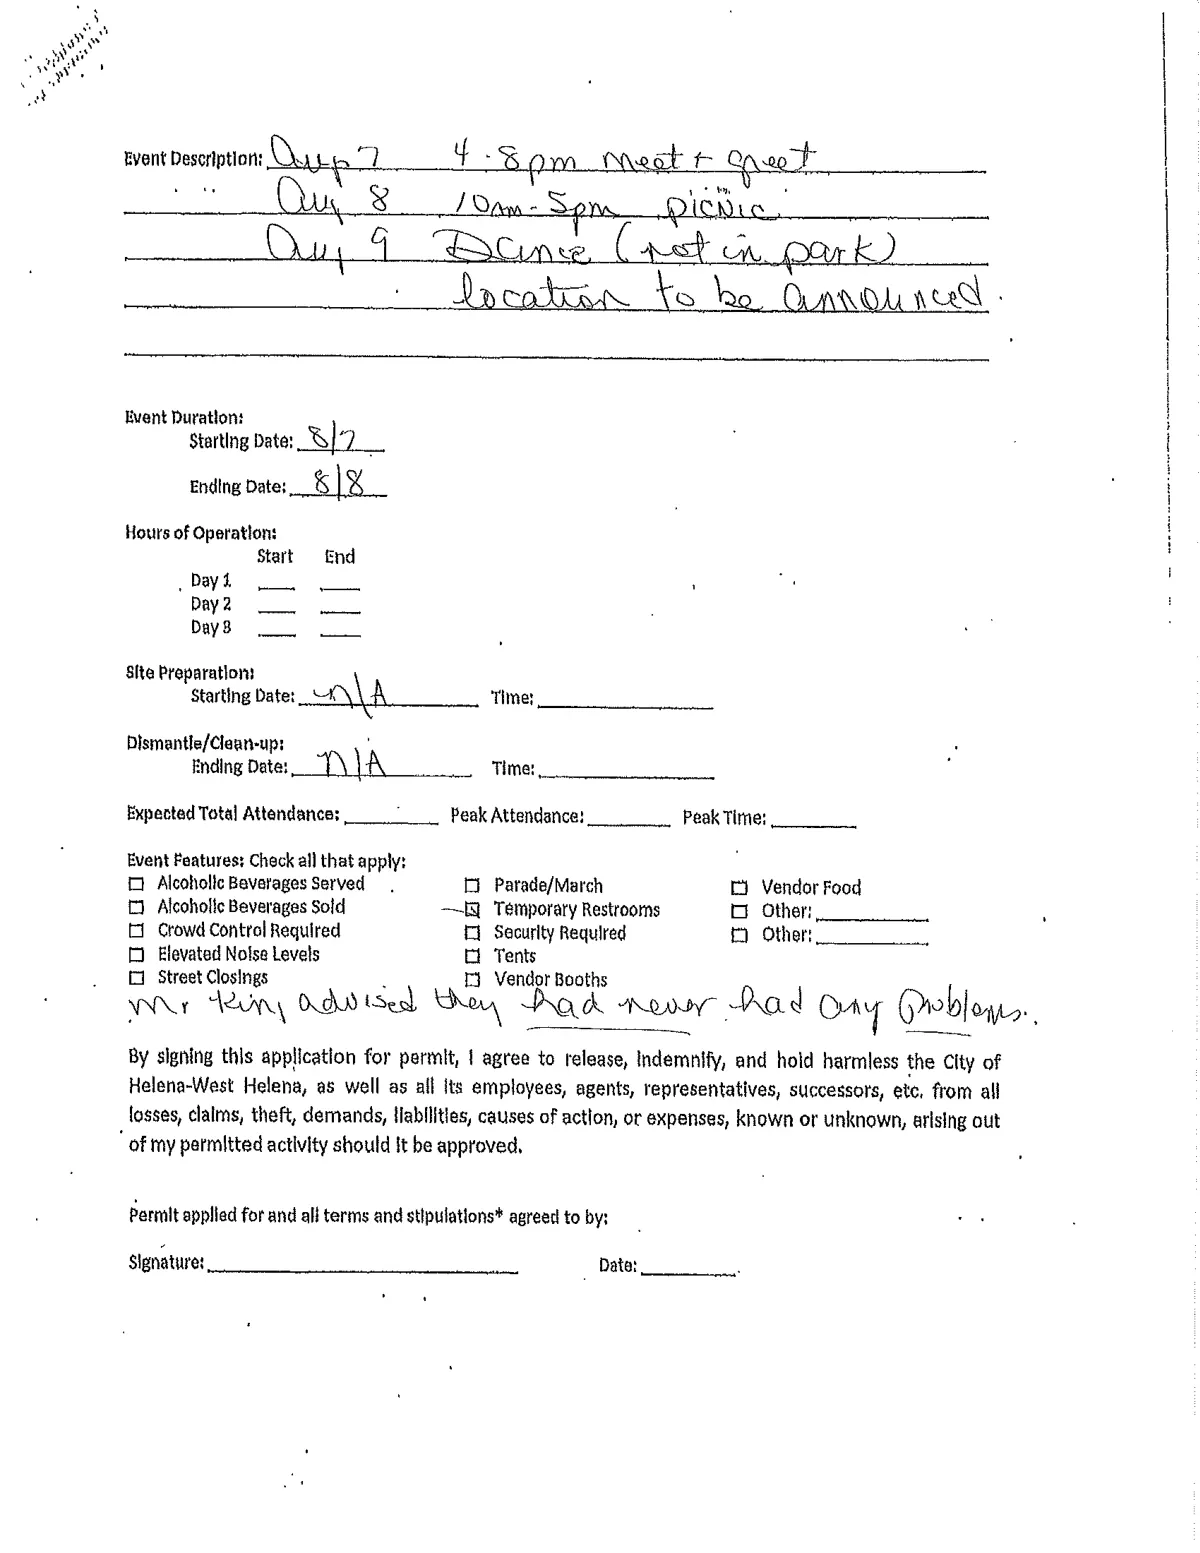 Event Description: Aug 7 4-8pm meet + greet
Aug 8 10am-5pm picnic
Aug 9 Dance (not in park)
location to be announced.
Event Duration:
Starting Date: 8/7
Ending Date: 8/8
Hours of Operation:
Start End
Day 1
Day 2
Day 3
Site Preparation:
Starting Date: n/A Time:
Dismantle/Clean-up:
Ending Date: n/A Time:
Expected Total Attendance: Peak Attendance: Peak Time:
Event Features: Check all that apply:
☐ Alcoholic Beverages Served ☐ Parade/March ☐ Vendor Food
☐ Alcoholic Beverages Sold ☒ Temporary Restrooms ☐ Other:
☐ Crowd Control Required ☐ Security Required ☐ Other:
☐ Elevated Noise Levels ☐ Tents
☐ Street Closings ☐ Vendor Booths
Mr King advised they had never had any problems.
By signing this application for permit, I agree to release, indemnify, and hold harmless the City of
Helena-West Helena, as well as all its employees, agents, representatives, successors, etc. from all
losses, claims, theft, demands, liabilities, causes of action, or expenses, known or unknown, arising out
of my permitted activity should it be approved.
Permit applied for and all terms and stipulations* agreed to by:
Signature: Date: